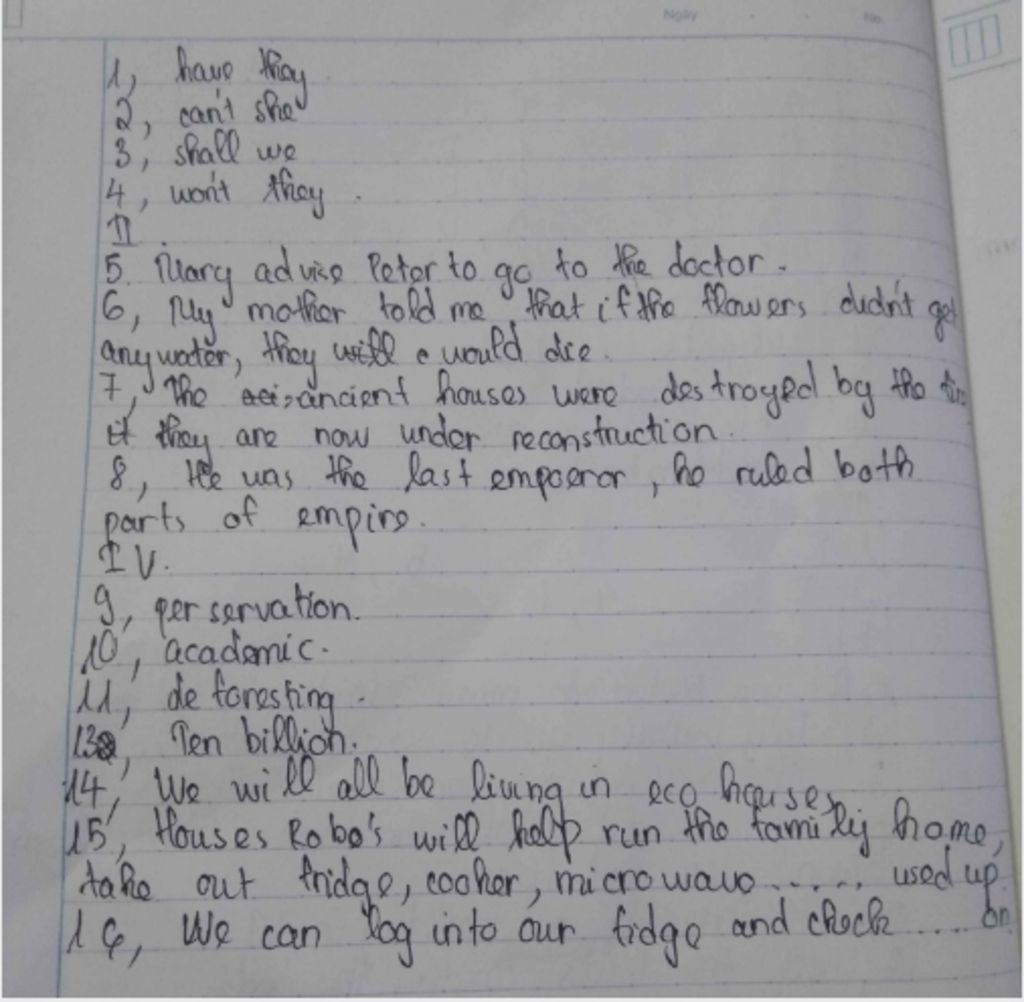 Ngày No.
1, have they
2, can't she
3, shall we
4, won't they.
II.
5. Mary advise Peter to go to the doctor.
6, My mother told me that if the flowers didn't get
any water, they will e would die.
7, The ancient houses were destroyed by the
they are now under reconstruction.
8, He was the last emporor, he ruled both
parts of empire.
IV.
9, perservation.
10, academic.
11, deforesting.
13, Ten billion.
14, We will all be living in eco houses.
15, Houses Robo's will help run the family home,
take out fridge, cooker, microwave ...... used up
16, We can log into our fidge and check .... on